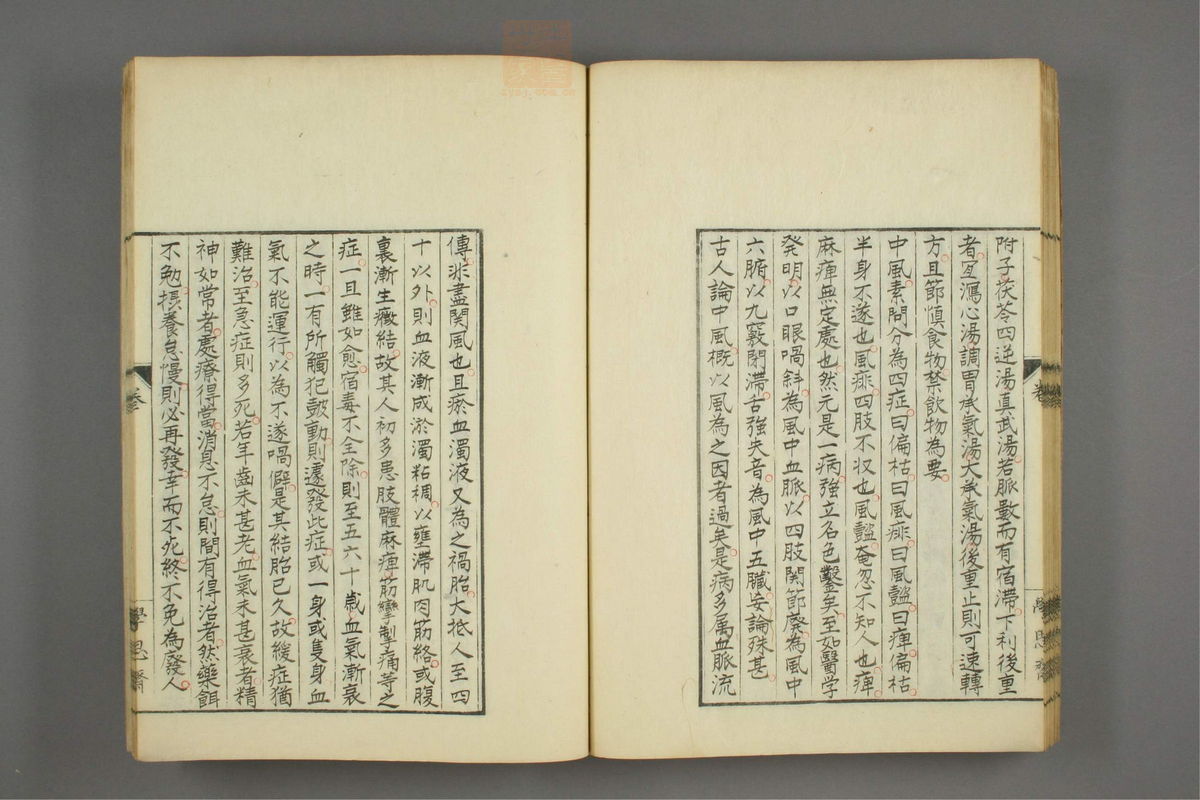 附子茯苓四逆湯真武湯若脈數而有宿滯下利後重
者宜瀉心湯調胃承氣湯大承氣湯後重止則可速轉
方且節慎食物禁飲物為要
中風素問分為四症曰偏枯曰風痱曰風懿曰痺偏枯
半身不遂也風痱四肢不收也風懿奄忽不知人也痺
麻痺無定處也然元是一病強立名色鑿矣至如醫學
発明以口眼喎斜為風中血脈以四肢関節廢為風中
六腑以九竅閉滯舌強失音為風中五臟妄論殊甚
古人論中風概以風為之因者過矣是病多属血脈流
傳非盡関風也且瘀血濁液又為之禍胎大抵人至四
十以外則血液漸成淤濁粘稠以壅滯肌肉筋絡或腹
裏漸生癥結故其人初多患肢體麻痺筋攣掣痛等之
症一旦雖如愈宿毒不全除則至五六十歳血氣漸衰
之時一有所觸犯皷動則遽發此症或一身或隻身血
氣不能運行以為不遂喎僻是其結胎已久故緩症猶
難治至急症則多死若年齒未甚老血氣未甚衰者精
神如常者處療得當消息不怠則間有得治者然藥餌
不勉損養怠慢則必再發幸而不死終不免為廢人
卷
卷
學思齋